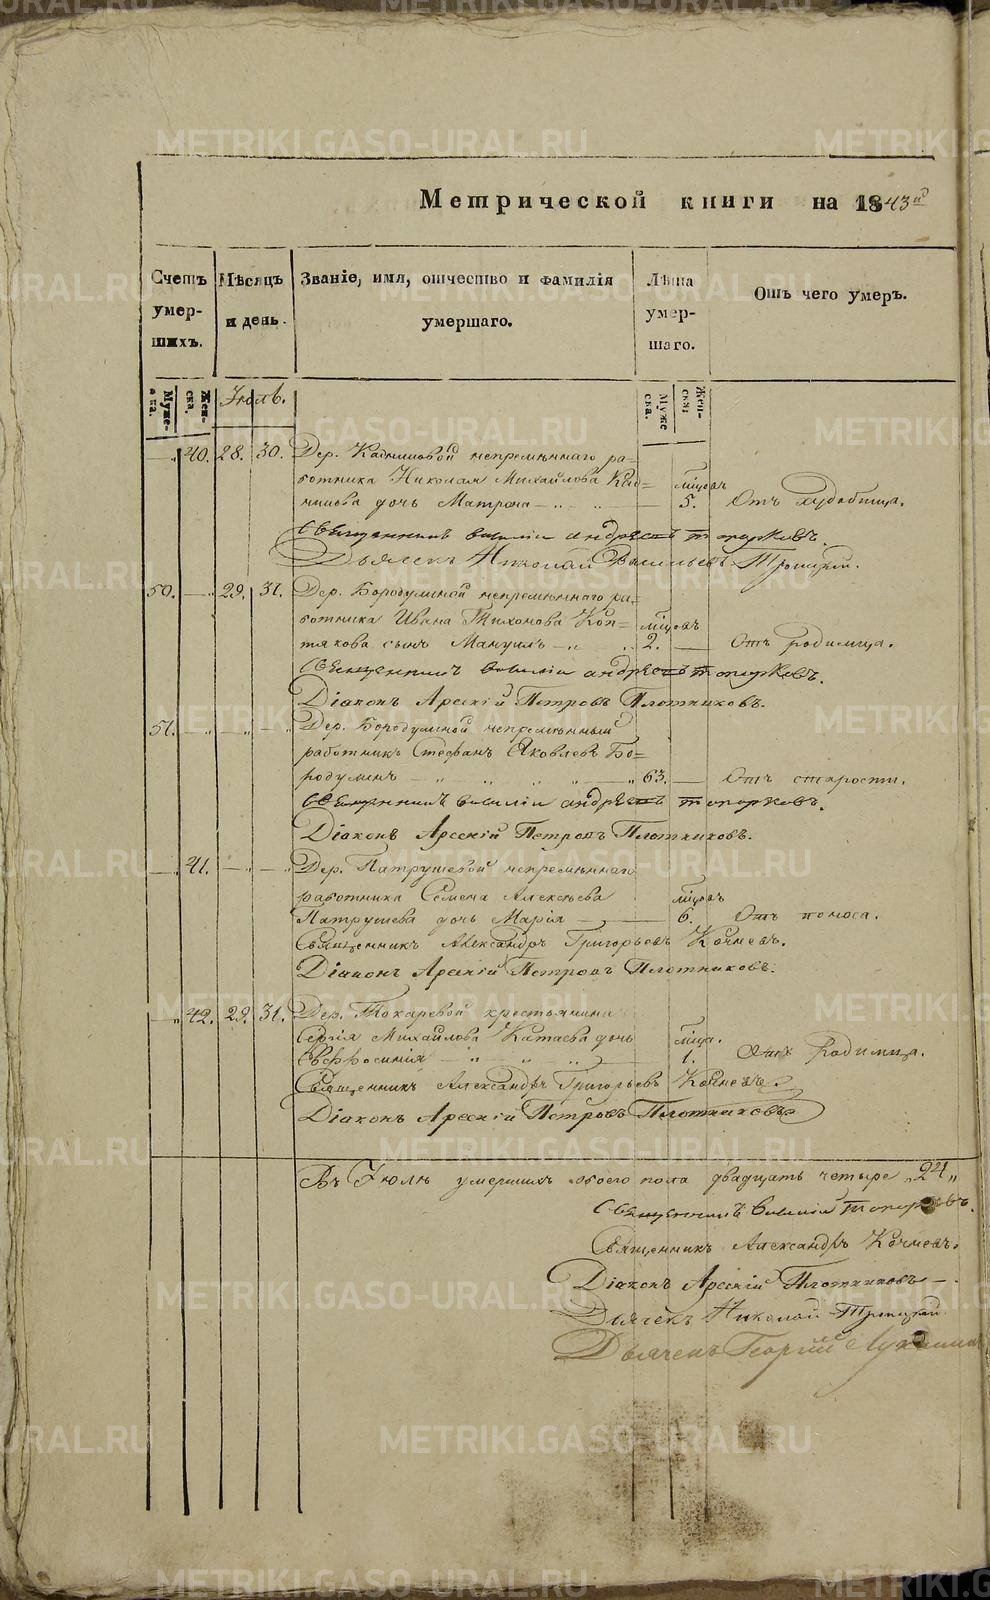 Метрической книги на 1843й
Счетъ умер-шихъ.
Мѣсяцъ и день.
Званіе, имя, отчество и фамилія умершаго.
Лѣта умер-шаго.
Отъ чего умеръ.
Муже-ска.
Жен-ска.
Іюль.
Муже ска.
Жен-ска;
„ 40. 28. 30. Дер. Кадниковой непремѣннаго ра=
ботника Николая Михайлова Кад= мѣсяцовъ
никова дочь Матрона — „ „ — 5. Отъ худобища.
Священникъ василій андреевъ топорковъ.
Дьячекъ Николай Васильевъ Троицкій.
50. — „ 29. 31. Дер. Бородулиной непремѣннаго ра=
ботника Ивана Тихонова Коп= мѣсяцовъ
тякова сынъ Мануилъ — „ „ 2. — Отъ родимца.
Священникъ василій андреевъ топорковъ.
Діаконъ Арсеній Петровъ Плотниковъ.
51. — „ — „ — „ Дер. Бородулиной непремѣнный
работникъ Стефанъ Яковлевъ Бо=
родулинъ — „ „ „ „ — „ 63. — Отъ старости.
Священникъ василій андреевъ топорковъ.
Діаконъ Арсеній Петровъ Плотниковъ.
— „ 41. — „ — „ Дер. Патрушевой непремѣннаго
работника Семена Алексѣева мѣсяцовъ
Патрушева дочь Марія — 6. Отъ поноса.
Священникъ Александръ Григорьевъ Кочневъ.
Діаконъ Арсеній Петровъ Плотниковъ.
— „ 42. 29. 31. Дер. Токаревой крестьянина
Сергія Михайлова Катаева дочь мѣсяца.
Евфросинія — „ „ „ — 1. Отъ Родимца.
Священникъ Александръ Григорьевъ Кочневъ.
Діаконъ Арсеній Петровъ Плотниковъ
Въ Іюлѣ умершихъ обоего пола двадцать четыре „24„
Священникъ Василій топорковъ.
Священникъ Александръ Кочневъ.
Діаконъ Арсеній Плотниковъ —.
Дьячекъ Николай Троицкій.
Дьячекъ Георгій
METRIKI.GASO-URAL.RU